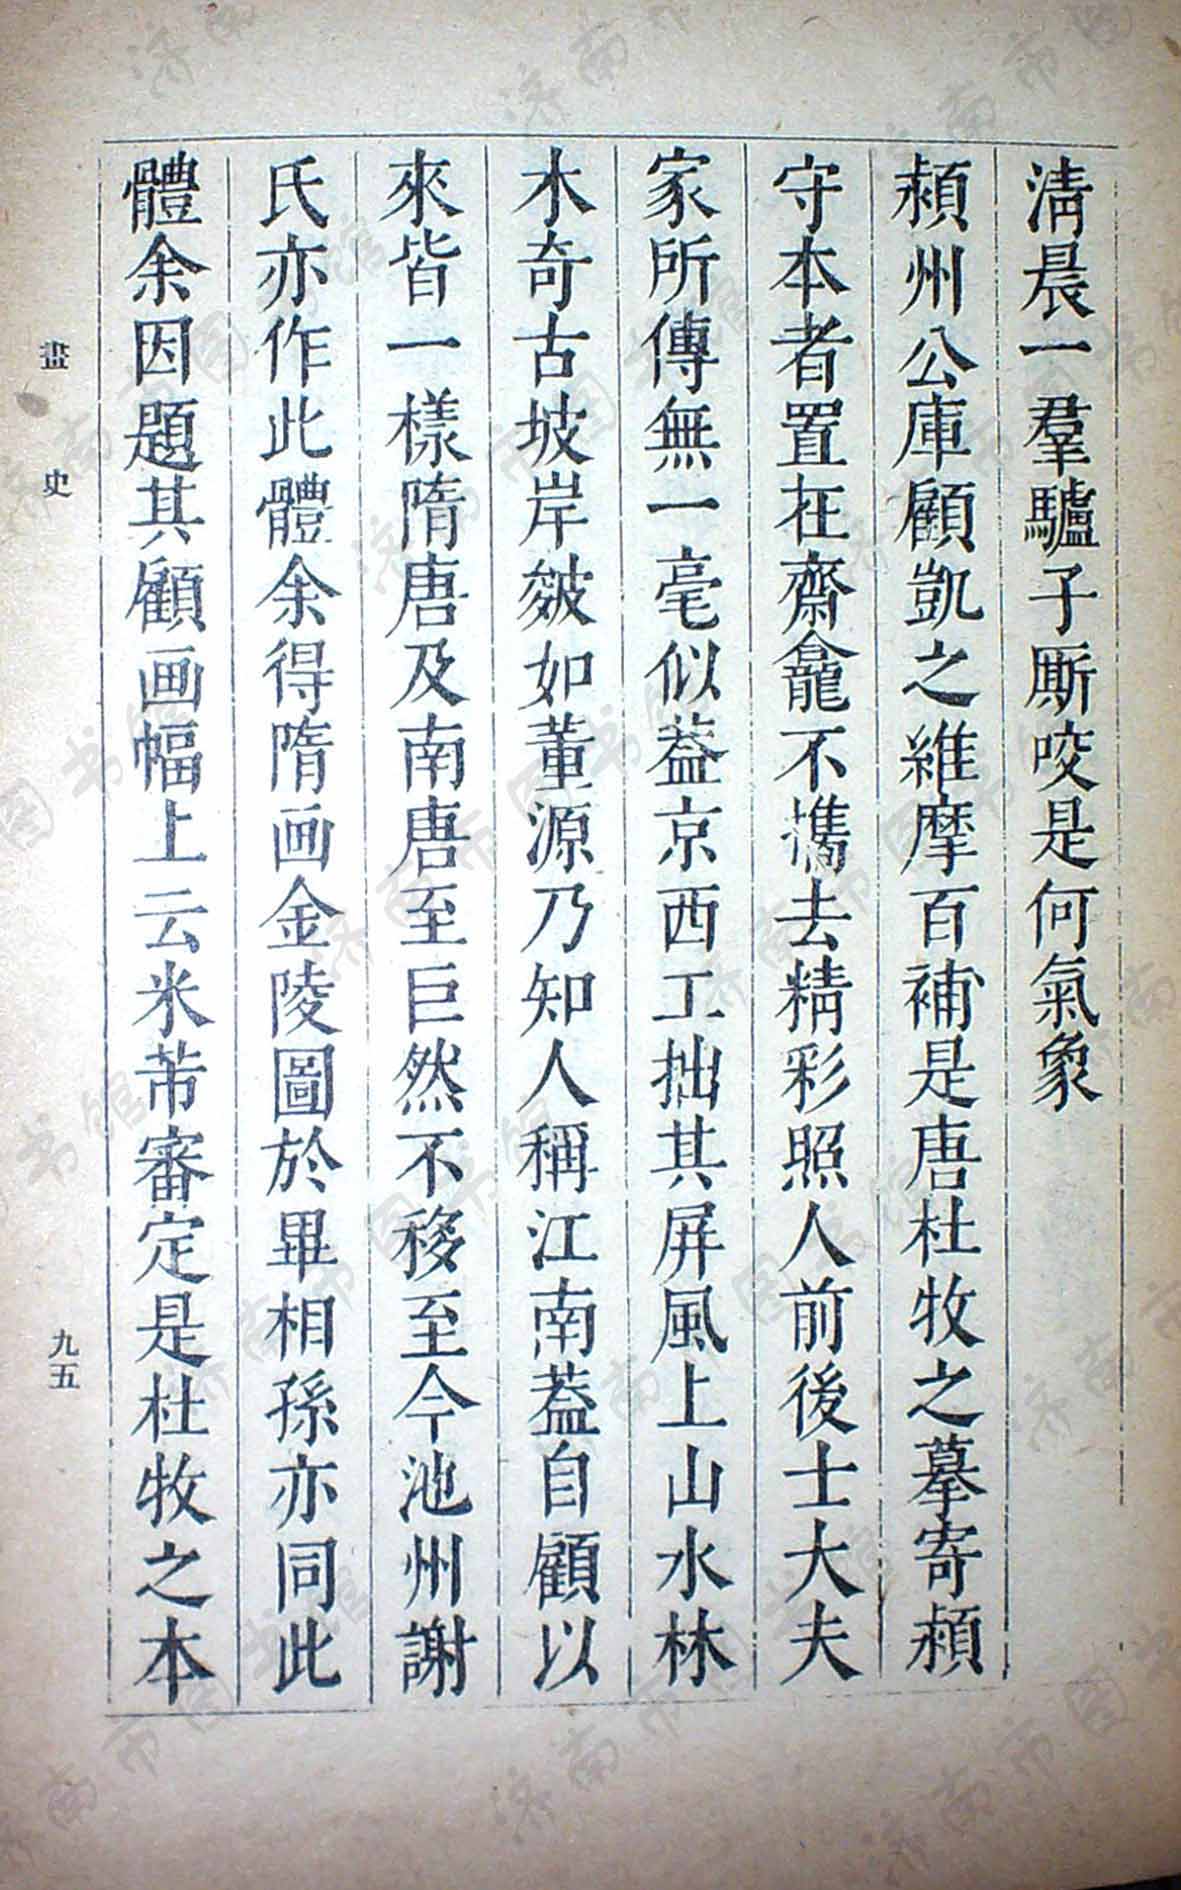 淸晨一羣驢子厮咬是何氣象
潁州公庫顧凱之維摩百補是唐杜牧之摹寄潁
守本者置在齋龕不攜去精彩照人前後士大夫
家所傳無一毫似葢京西工拙其屏風上山水林
木奇古坡岸皴如董源乃知人稱江南葢自顧以
來皆一樣隋唐及南唐至巨然不移至今池州謝
氏亦作此體余得隋画金陵圖於畢相孫亦同此
體余因題其顧画幅上云米芾審定是杜牧之本
畫史
九五
济南市图书馆